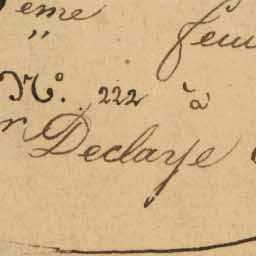 eme feui
"
N.º 222 à
r Declaye